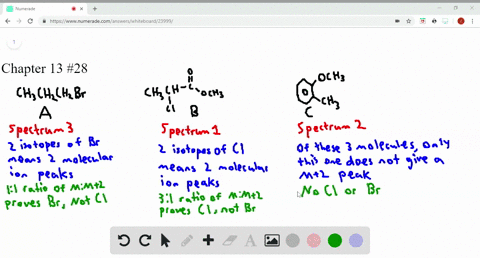 Numerade
https://www.numerade.com/answers/whiteboard/23999/
1
Chapter 13 #28
CH3CH2CH2Br
A
Spectrum 3
2 isotopes of Br
means 2 molecular
ion peaks
1:1 ratio of M:M+2
proves Br, Not Cl
O
CH3CH C OCH3
Cl
B
Spectrum 1
2 isotopes of Cl
means 2 molecular
ion peaks
3:1 ratio of M:M+2
proves Cl, not Br
OCH3
CH3
C
Spectrum 2
Of these 3 molecules, only
this one does not give a
M+2 peak
No Cl or Br
A